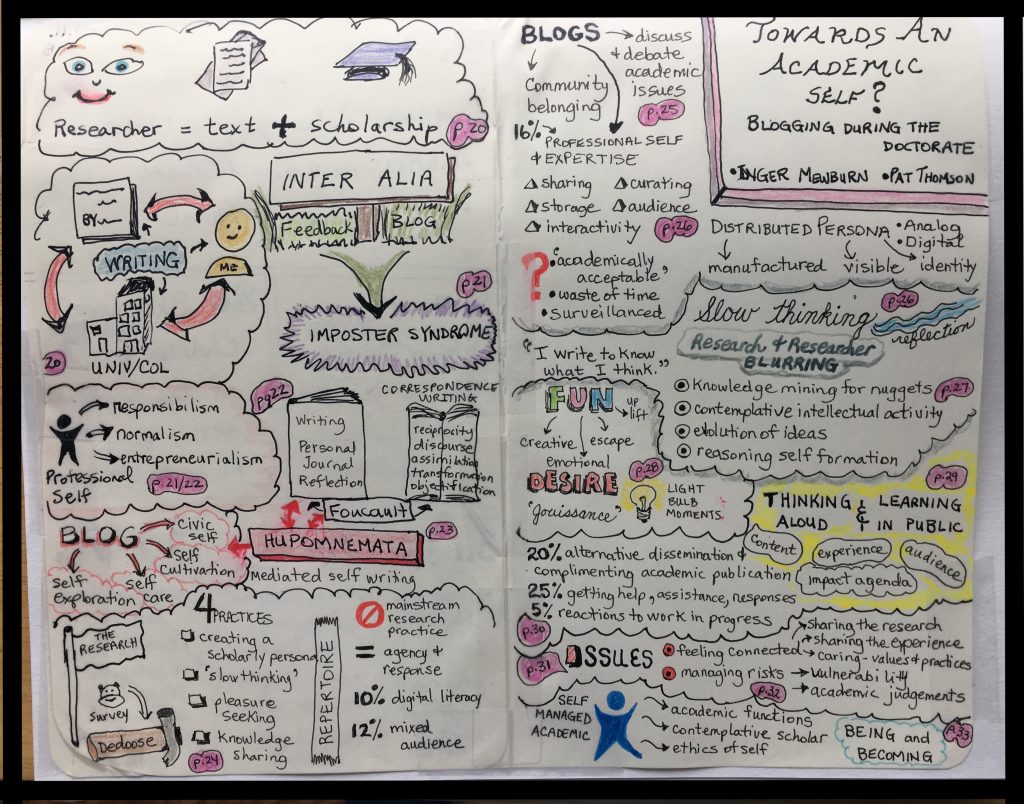 Researcher = text + scholarship p.20
BY
WRITING
ME
UNIV/COL
20
INTER ALIA
Feedback
BLOG
p.21
IMPOSTER SYNDROME
responsibilism
normalism
entrepreneurialism
Professional
Self
p.21/22
pg22
Writing
Personal
Journal
Reflection
CORRESPONDENCE
WRITING
reciprocity
discourse
assimilation
transformation
objectification
Foucault
p.23
HUPOMNEMATA
Mediated self writing
BLOG
Civic
self
Self
Cultivation
self
exploration
self
care
THE
RESEARCH
survey
Dedoose
4 PRACTICES
creating a
scholarly persona
"slow thinking"
pleasure
seeking
Knowledge
sharing
p.24
REPERTOIRE
mainstream
research
practice
= agency &
response
10% digital literacy
12% mixed
audience
BLOGS
discuss
& debate
academic
issues
p.25
Community
belonging
16%
PROFESSIONAL SELF
& EXPERTISE
sharing
curating
storage
audience
interactivity
p.26
? • "academically
acceptable"
• waste of time
• Surveillanced
"I write to know
what I think."
FUN
up
lift
creative
escape
emotional
p.28
DESIRE
"Jouissance"
LIGHT
BULB
MOMENTS
TOWARDS AN
ACADEMIC
SELF?
BLOGGING DURING THE
DOCTORATE
• INGER MEWBURN • PAT THOMSON
DISTRIBUTED PERSONA
• Analog
• Digital
manufactured
visible
identity
Slow thinking
p.26
reflection
Research & Researcher
BLURRING
Knowledge mining for nuggets p.27
contemplative intellectual activity
evolution of ideas
reasoning self formation
p.29
THINKING & LEARNING
ALOUD IN PUBLIC
Content
experience
audience
Impact agenda
20% alternative dissemination &
complimenting academic publication
25% getting help, assistance, responses
5% reactions to work in progress
p.30
p.31
ISSUES
feeling connected
sharing the research
sharing the experience
caring - values & practices
managing risks
vulnerability
academic judgements
p.32
SELF
MANAGED
ACADEMIC
academic functions
contemplative scholar
ethics of self
BEING and
BECOMING
p.33